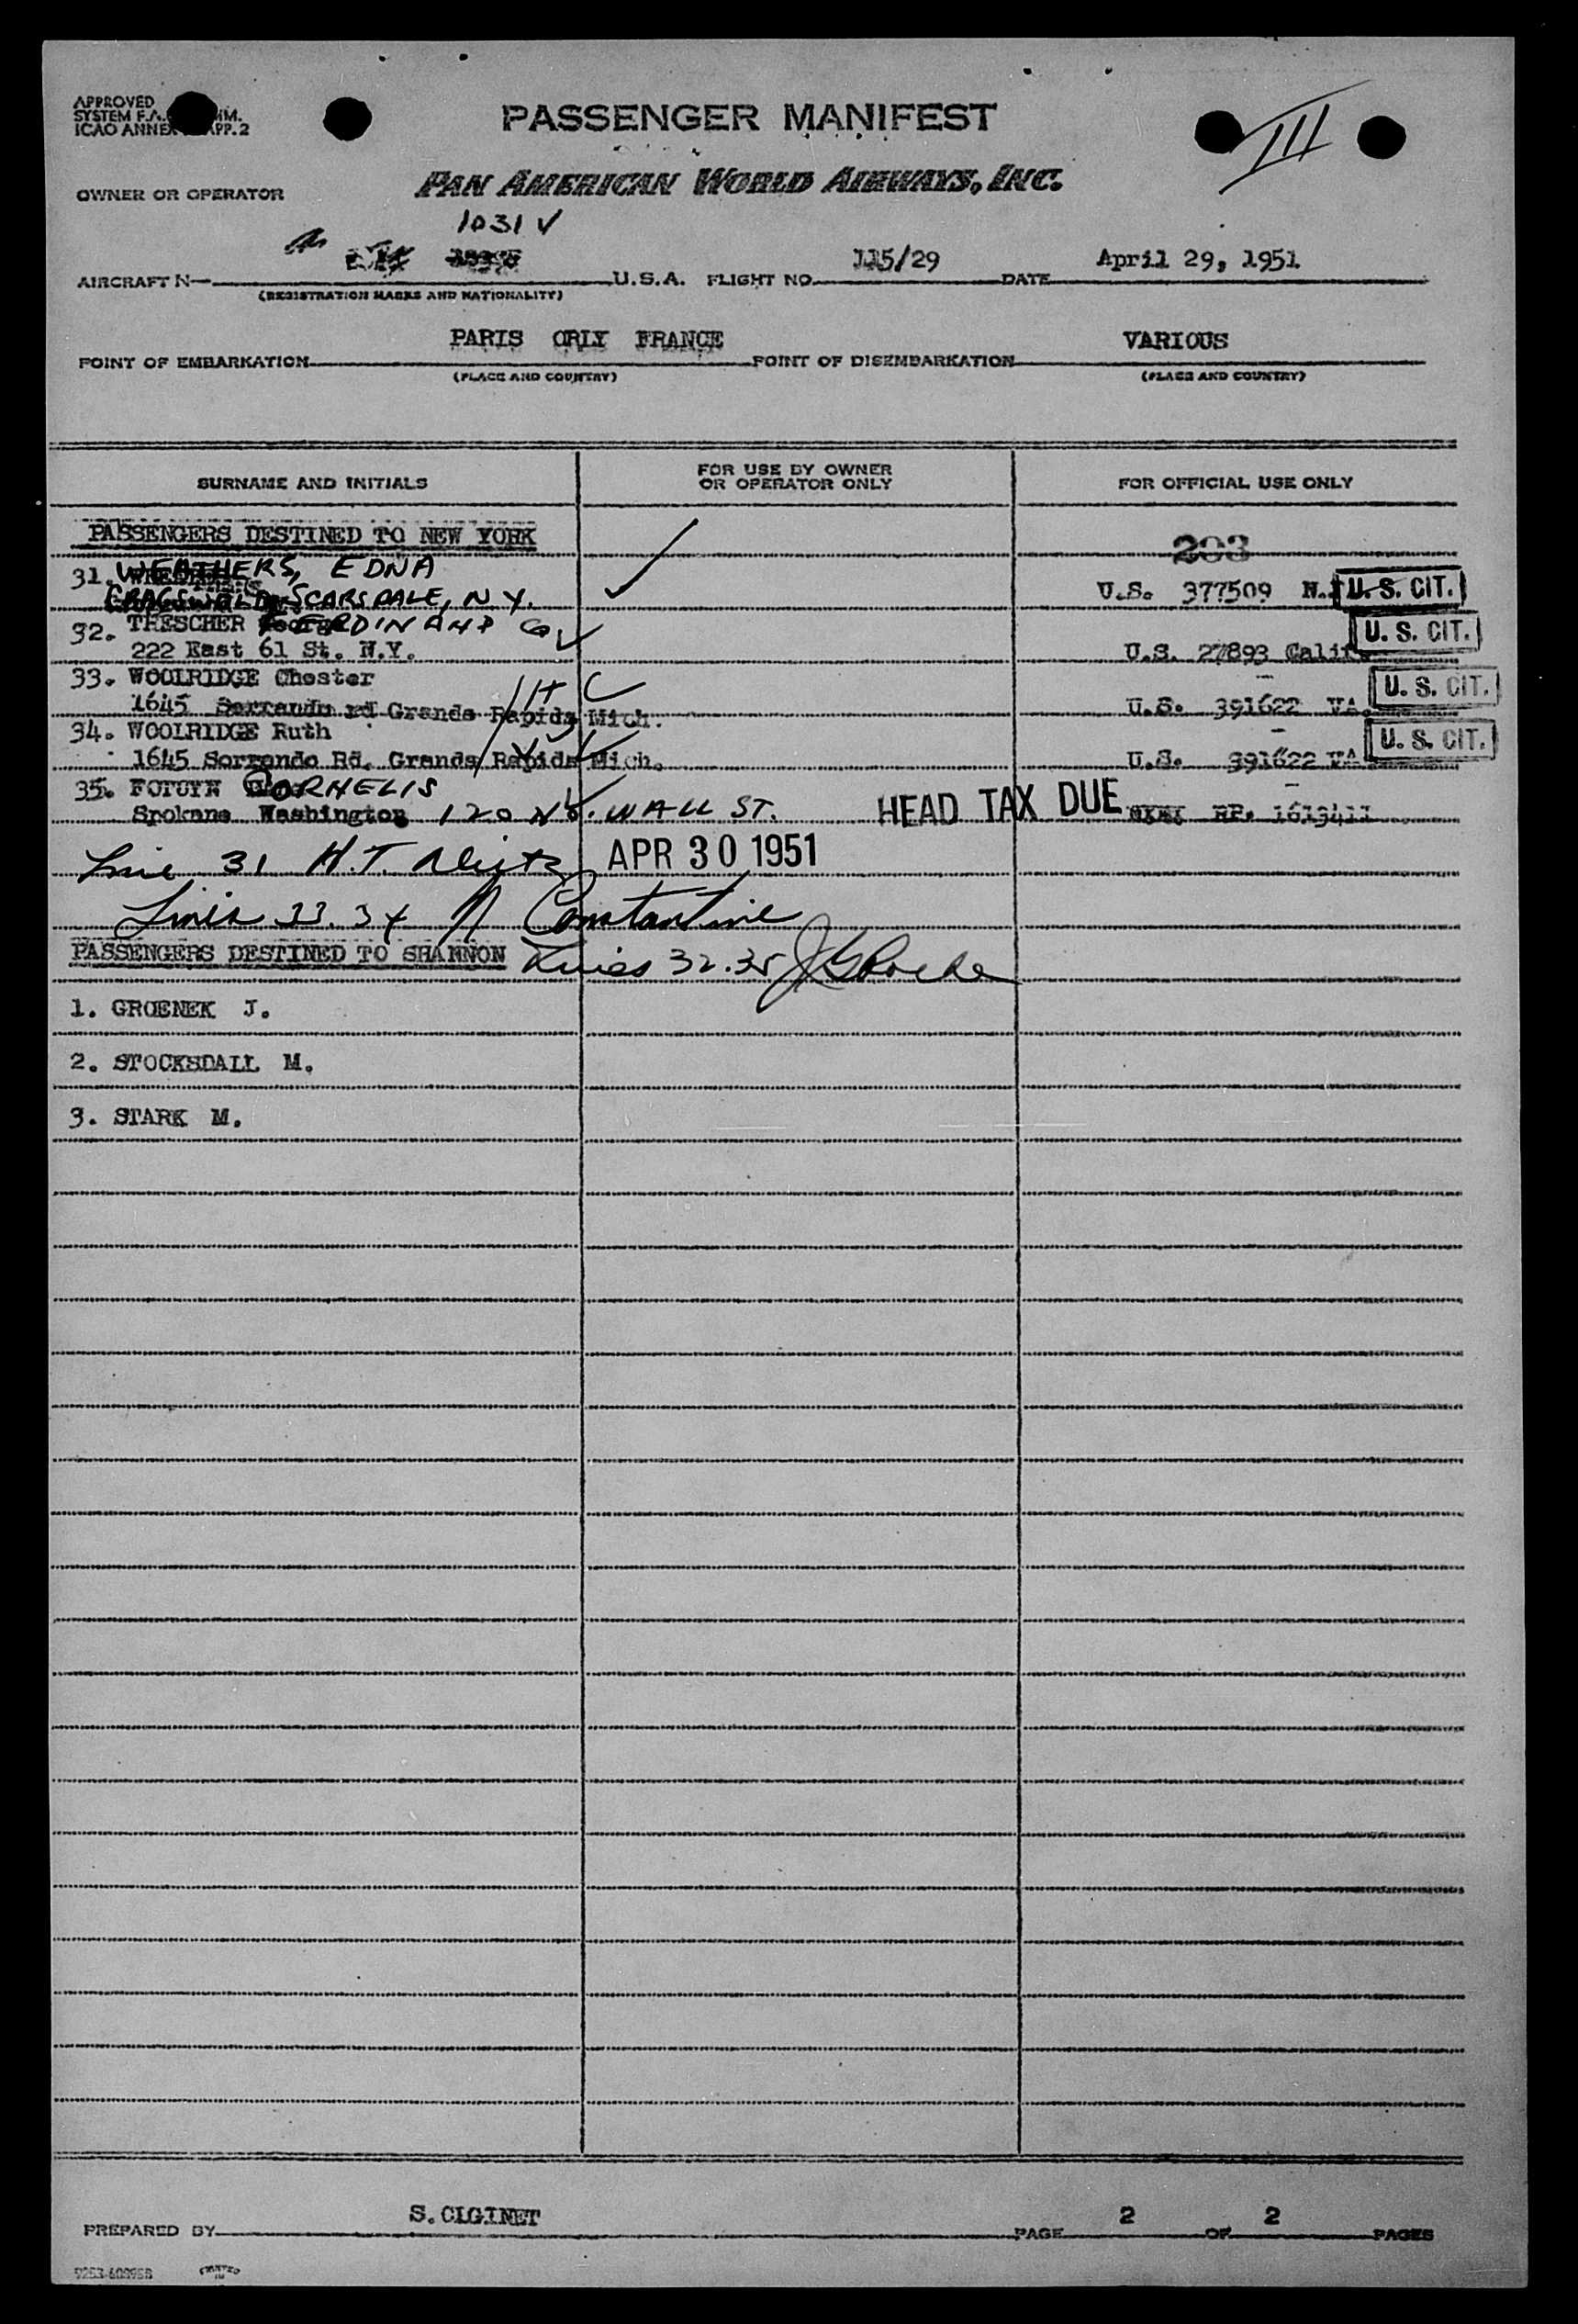 APPROVED
SYSTEM F.A. MM.
ICAO ANNEX APP. 2
PASSENGER MANIFEST
III
OWNER OR OPERATOR
PAN AMERICAN WORLD AIRWAYS, INC.
1031V
AIRCRAFT N— U.S.A. FLIGHT NO. 115/29 DATE April 29, 1951
(REGISTRATION MARKS AND NATIONALITY)
POINT OF EMBARKATION PARIS ORLY FRANCE POINT OF DISEMBARKATION VARIOUS
(PLACE AND COUNTRY) (PLACE AND COUNTRY)
SURNAME AND INITIALS FOR USE BY OWNER OR OPERATOR ONLY FOR OFFICIAL USE ONLY
PASSENGERS DESTINED TO NEW YORK
203
31. WEATHERS, EDNA
SCARSDALE, N.Y. U.S. 377509 U. S. CIT.
32. TRESCHER FERDINAND G
222 East 61 St. N.Y. U.S. 27893 Calif. U. S. CIT.
33. WOOLRIDGE Chester
1645 Sorrando rd Grands Rapids Mich. U.S. 391622 VA. U. S. CIT.
34. WOOLRIDGE Ruth
1645 Sorrando Rd. Grands Rapids Mich. U.S. 391622 VA U. S. CIT.
35. FOTUYN CORNELIS
Spokane Washington 120 N. WALL ST. HEAD TAX DUE RP. 1613411
Line 31 H.T. APR 30 1951
Lines 33.34 N Constantine
PASSENGERS DESTINED TO SHANNON Lines 32.35 J G Roche
1. GROENEK J.
2. STOCKSDALL M.
3. STARK M.
PREPARED BY S. CIGINET PAGE 2 OF 2 PAGES
PRINTED
IN